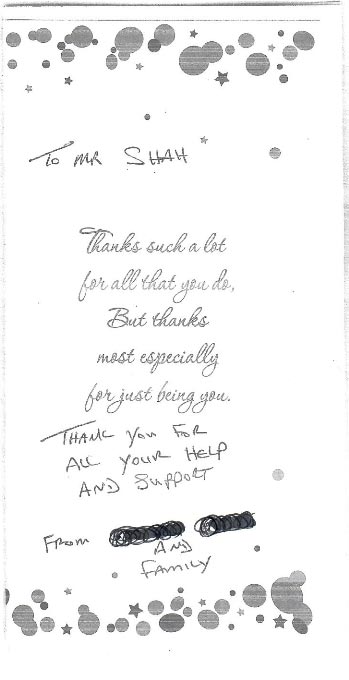 To MR SHAH
Thanks such a lot
for all that you do,
But thanks
most especially
for just being you.
THANK YOU FOR
ALL YOUR HELP
AND SUPPORT
FROM
AND
FAMILY